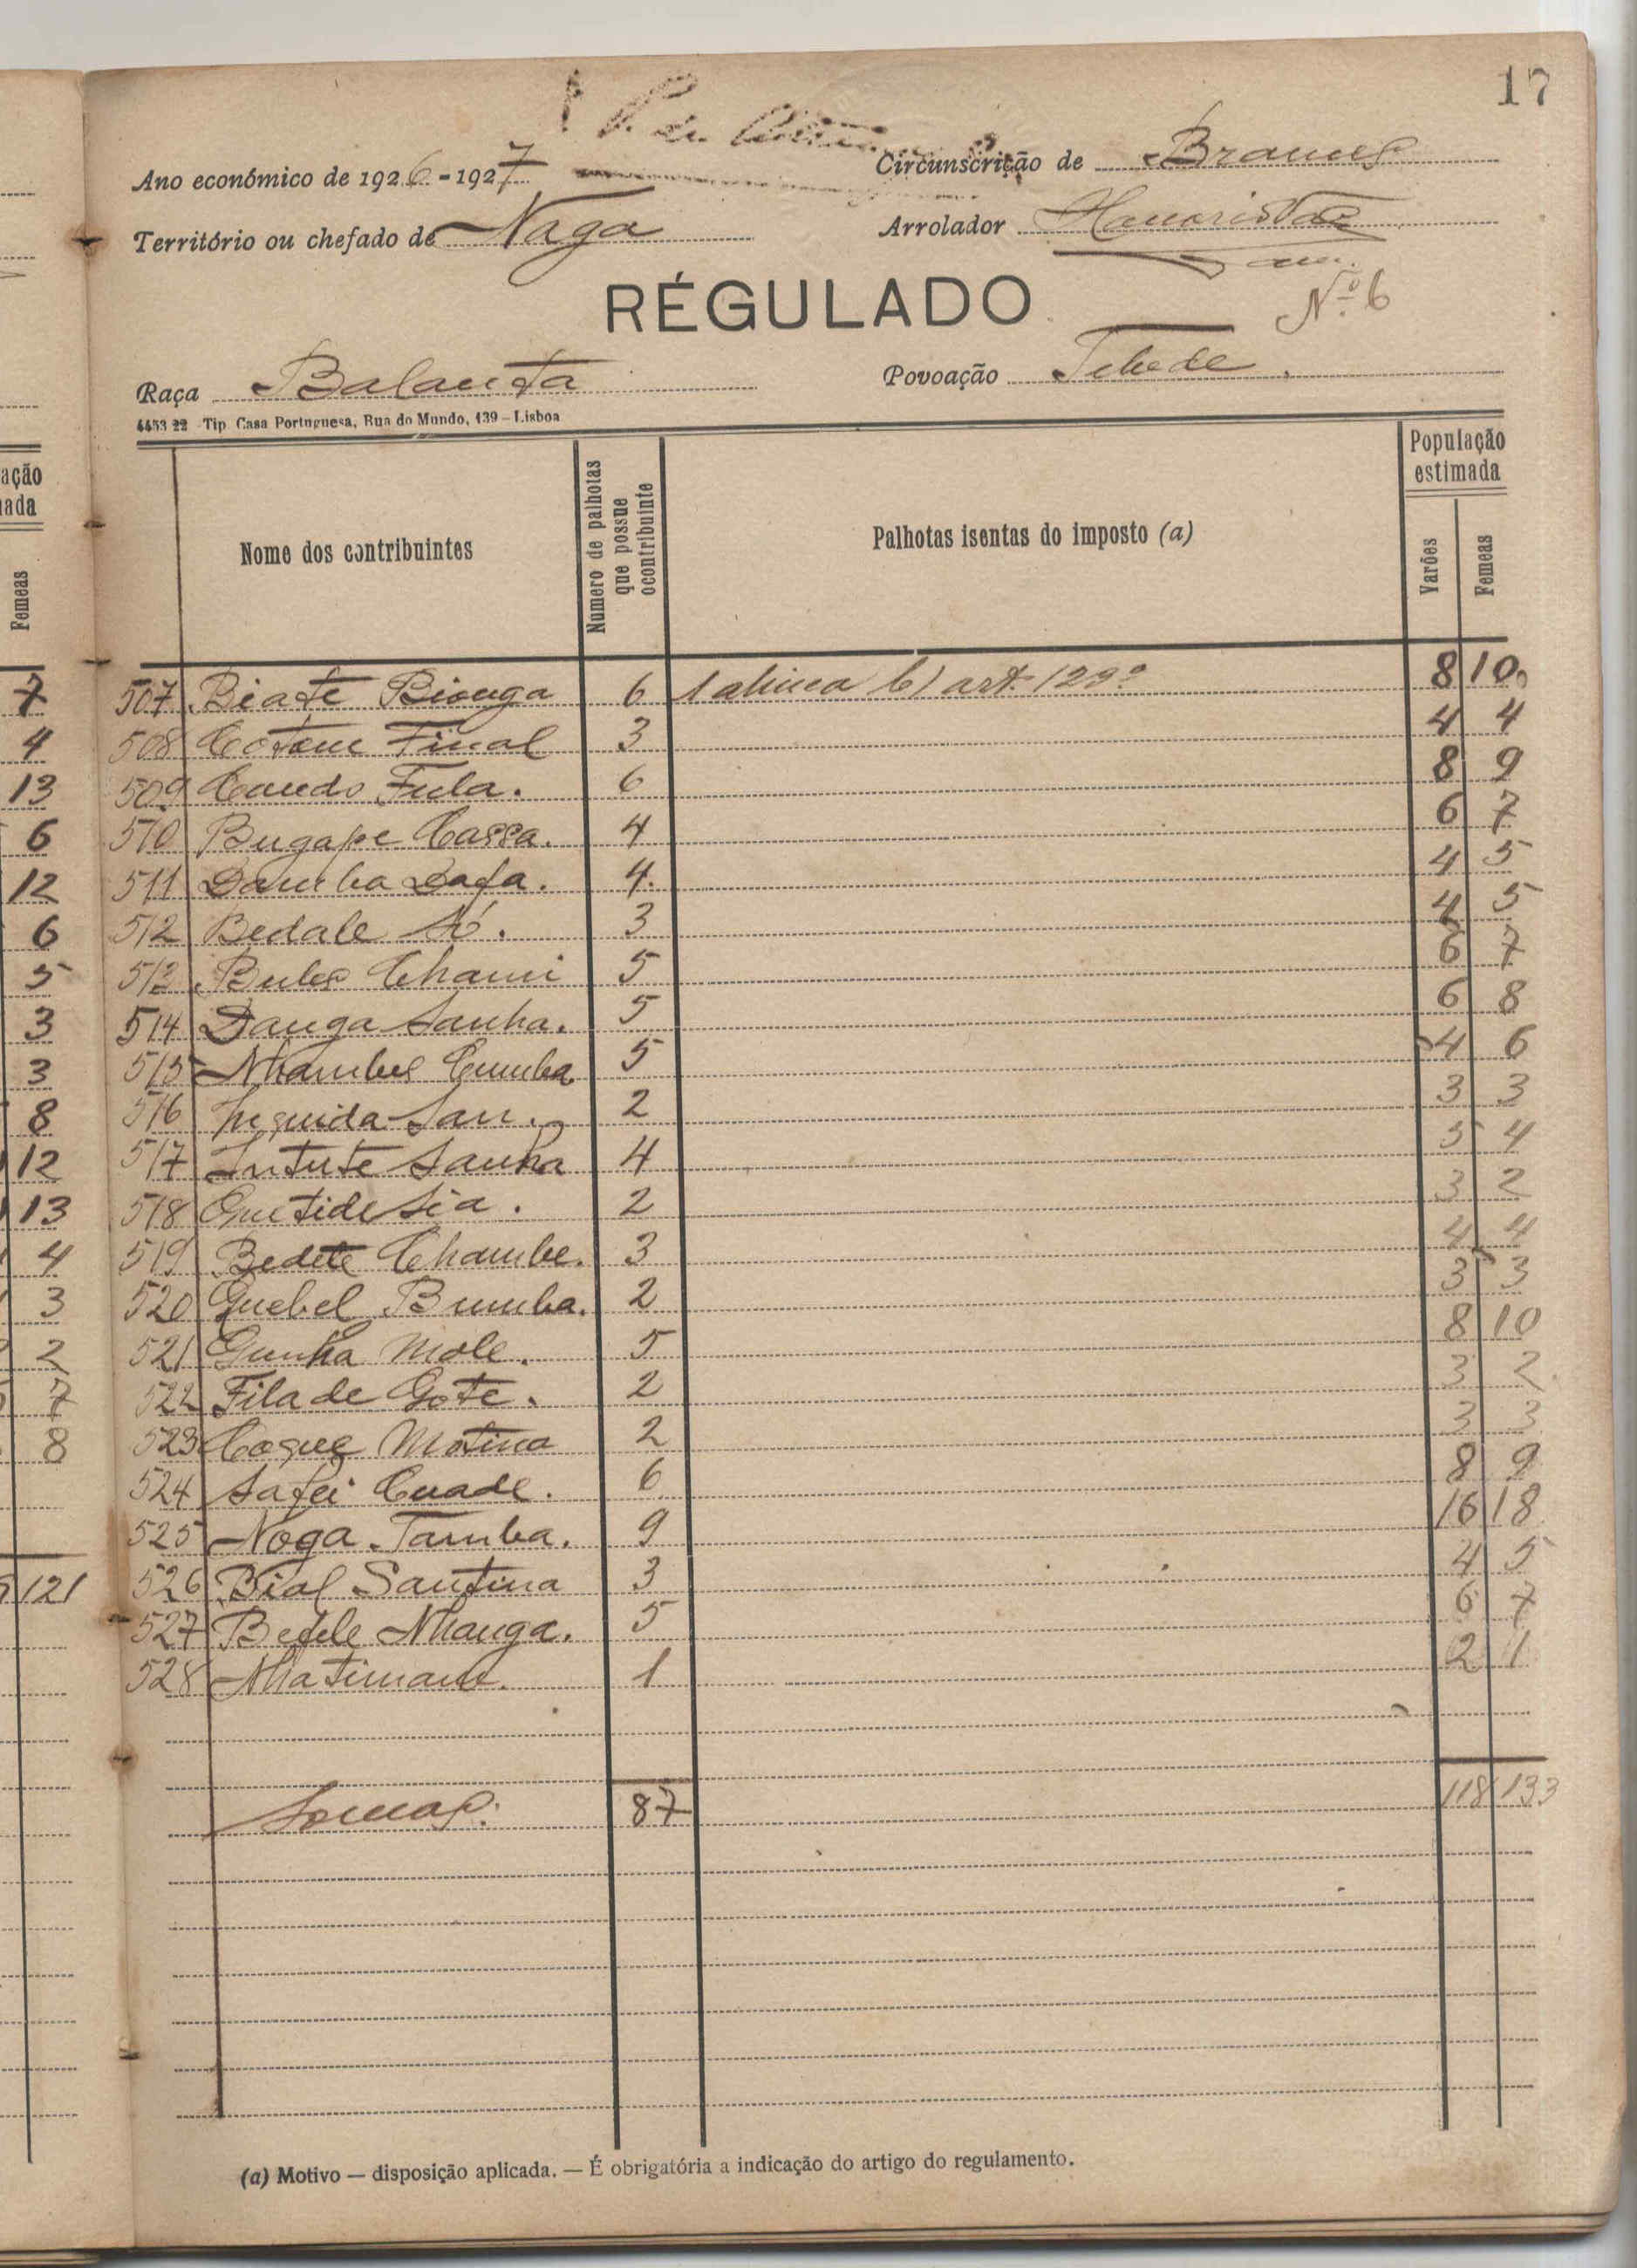 17
Ano económico de 1926-1927
Circunscrição de Brames
Território ou chefado de Naga
Arrolador
RÉGULADO
Nº 6
Raça Balanta
Povoação
4453 22 Tip. Casa Portuguesa, Rua do Mundo, 139 – Lisboa
Nome dos contribuintes
Numero de palhotas que possue ocontribuinte
Palhotas isentas do imposto (a)
População estimada
Varões
Femeas
507 Biate Bionga 6 1 alinea b) art. 129º 8 10
508 Final 3 4 4
509 Cando Fula. 6 8 9
510 Bugape Cassa. 4 6 7
511 Damba Dafa. 4. 4 5
512 Bedale Só. 3 4 5
513 Chami 5 6 7
514 Danga Sanha. 5 6 8
515 Cumba 5 4 6
516 San. 2 3 3
517 Intute Sanha 4 5 4
518 Guetide Sia. 2 3 2
519 Bedete Chambe. 3 4 4
520 Quebel Bumba. 2 3 3
521 Gunha Mole. 5 8 10
522 Filade Gote. 2 3 2
523 Coque Motina 2 3 3
524 Safei Cuade. 6 8 9
525 Noga Tamba. 9 16 18
526 Bial Santina 3 4 5
527 Nhanga. 5 6 7
528 1 2 1
Somas. 87 118 133
(a) Motivo — disposição aplicada. — É obrigatória a indicação do artigo do regulamento.
ação
ada
Femeas
7
4
13
6
12
6
5
3
3
8
12
13
4
3
2
7
8
121